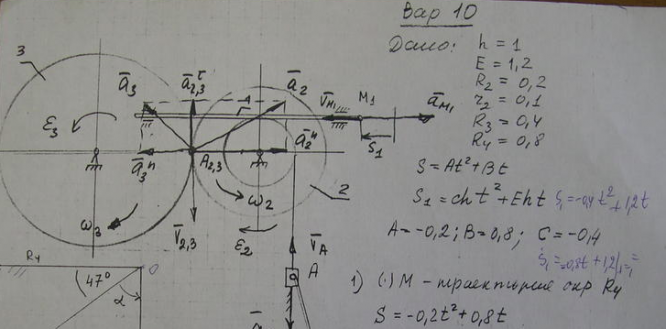 Вар 10
Дано: h = 1
E = 1,2
R₂ = 0,2
r₂ = 0,1
R₃ = 0,4
R₄ = 0,8
S = At² + Bt
S₁ = cht² + Eht S₁ = -0,4t² + 1,2t
A = -0,2; B = 0,8; C = -0,4
Ṡ₁ = -0,8t + 1,2
1) (·) M - траектория окр R₄
S = -0,2t² + 0,8t
3
ā₃
ā₂,₃ᵗ
ā₂
V̄м₁
M₁
āм₁
S₁
ε₃
ā₃ⁿ
A₂,₃
ā₂ⁿ
2
ω₃
ω₂
V̄₂,₃
ε₂
V̄A
A
R₄
O
47°
α